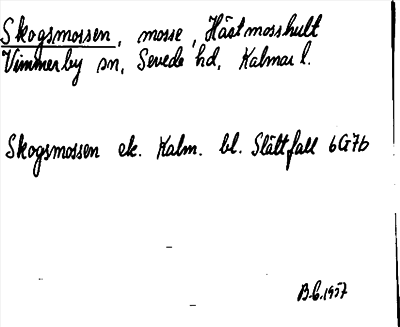 Skogsmossen, mosse, Hästmosshult
Vimmerby sn, Sevede hd, Kalmar l.
Skogsmossen ek. Kalm. bl. Slättfall 6G7b
B.G. 1957